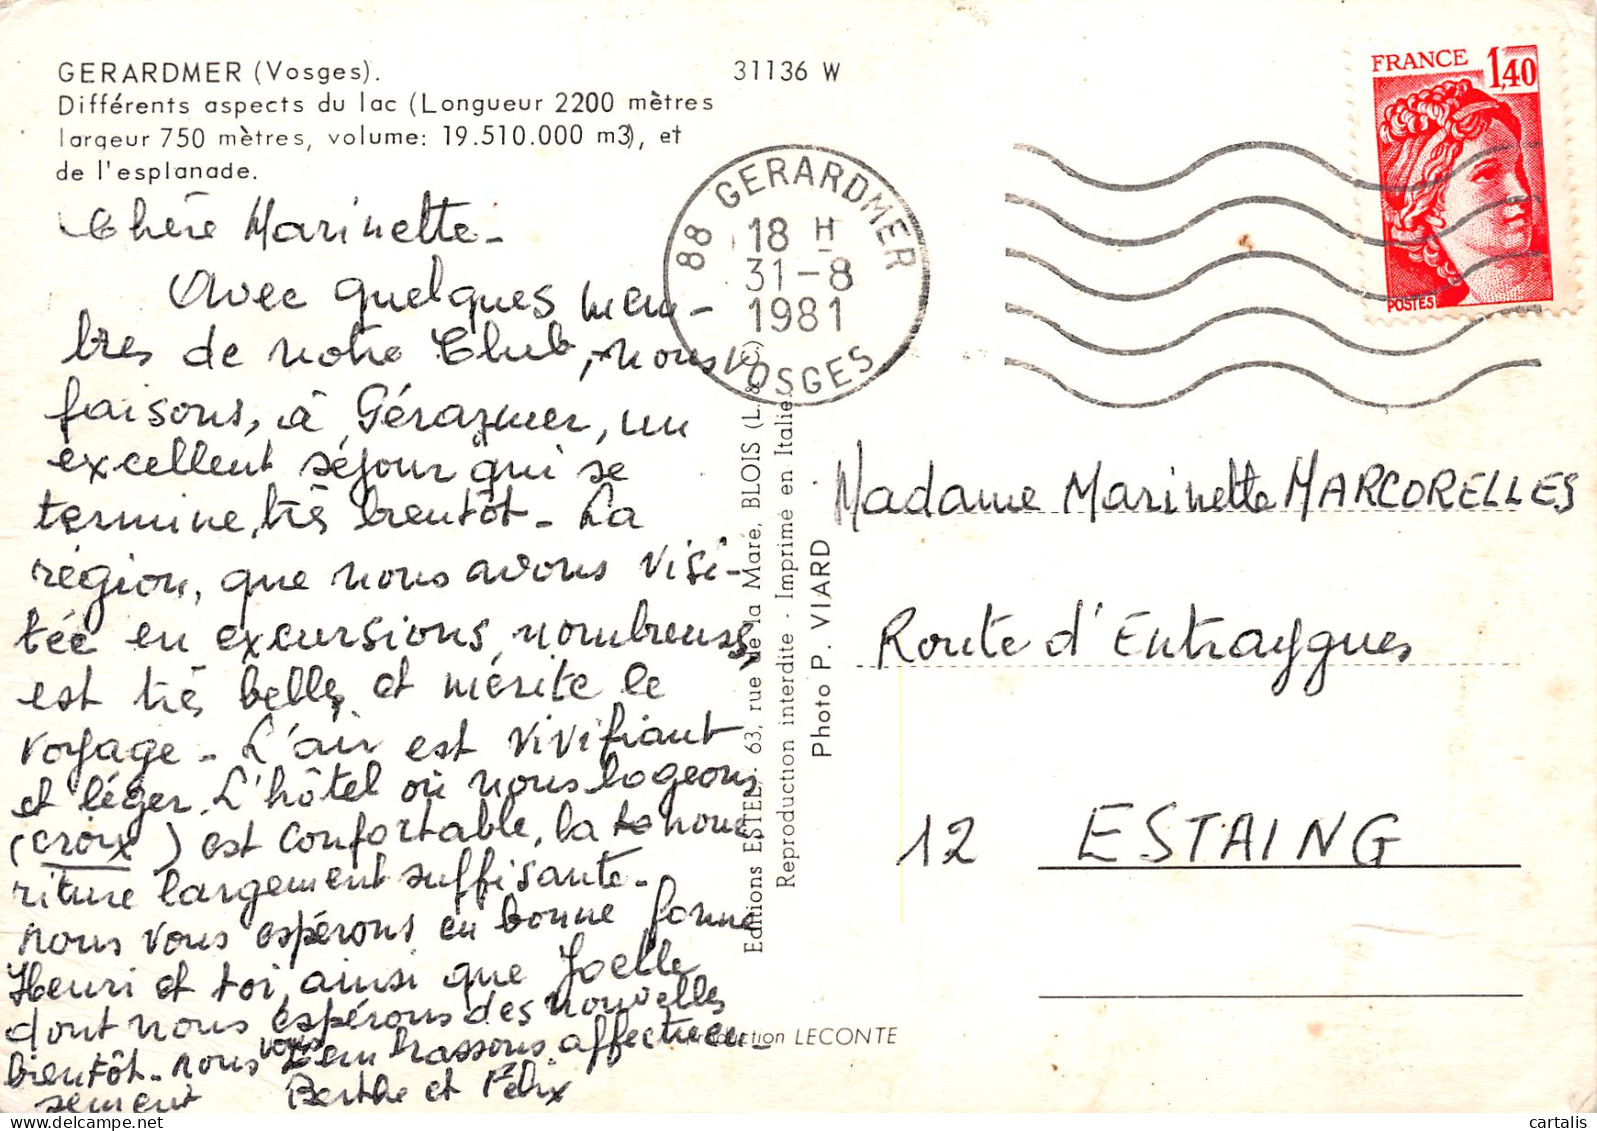 GERARDMER (Vosges).
Différents aspects du lac (Longueur 2200 mètres
largeur 750 mètres, volume: 19.510.000 m3), et
de l'esplanade.
31136 W
FRANCE 1,40
POSTES
88 GERARDMER
18 H
31-8
1981
VOSGES
Chère Marinette-
Avec quelques mem-
bres de notre Club, nous
faisons, à Gérarmer, un
excellent séjour qui se
termine, très bientôt- La
région, que nous avons visi-
tée en excursions nombreuses,
est très belle, et mérite le
voyage- L'air est vivifiant
et léger. L'hôtel où nous logeons,
(croix) est confortable, la nour
riture largement suffisante-
nous vous espérons en bonne forme
Henri et toi, ainsi que Joelle
dont nous espérons des nouvelles
bientôt- nous vous embrassons affectueu-
sement Berthe et Félix
Editions ESTEL, 63, rue de la Maré, BLOIS (L. & C.)
Reproduction interdite - Imprimé en Italie.
Photo P. VIARD
Production LECONTE
Madame Marinette MARCORELLES
Route d'Entraygues
12 ESTAING
cartalis